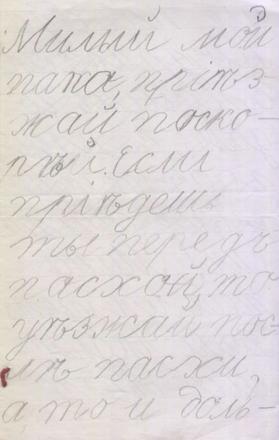 Милый мой
папа, пріѣз
жай поско-
рѣй. Если
пріѣдешь
ты передъ
пасхой, то
уѣзжай пос-
лѣ пасхи,
а то и доль-